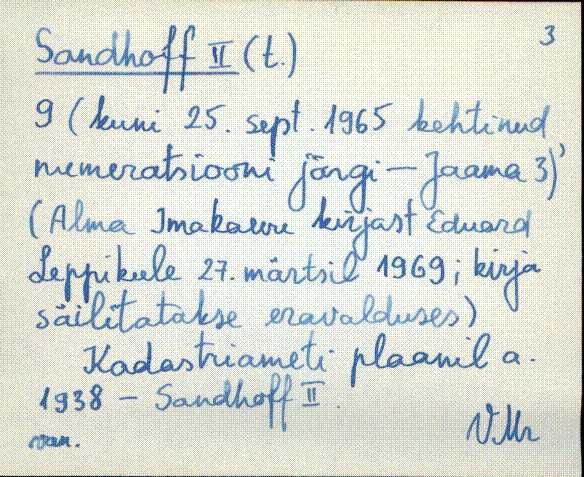 3
Sandhoff II (t.)
9 (kuni 25. sept. 1965 kehtinud
numeratsiooni järgi – Jaama 3)
(Alma Imakaevu kirjast Eduard
Leppikule 27. märtsil 1969; kirja
säilitatakse eravalduses)
Kadastriameti plaanil a.
1938 – Sandhoff II.
van.
VMr